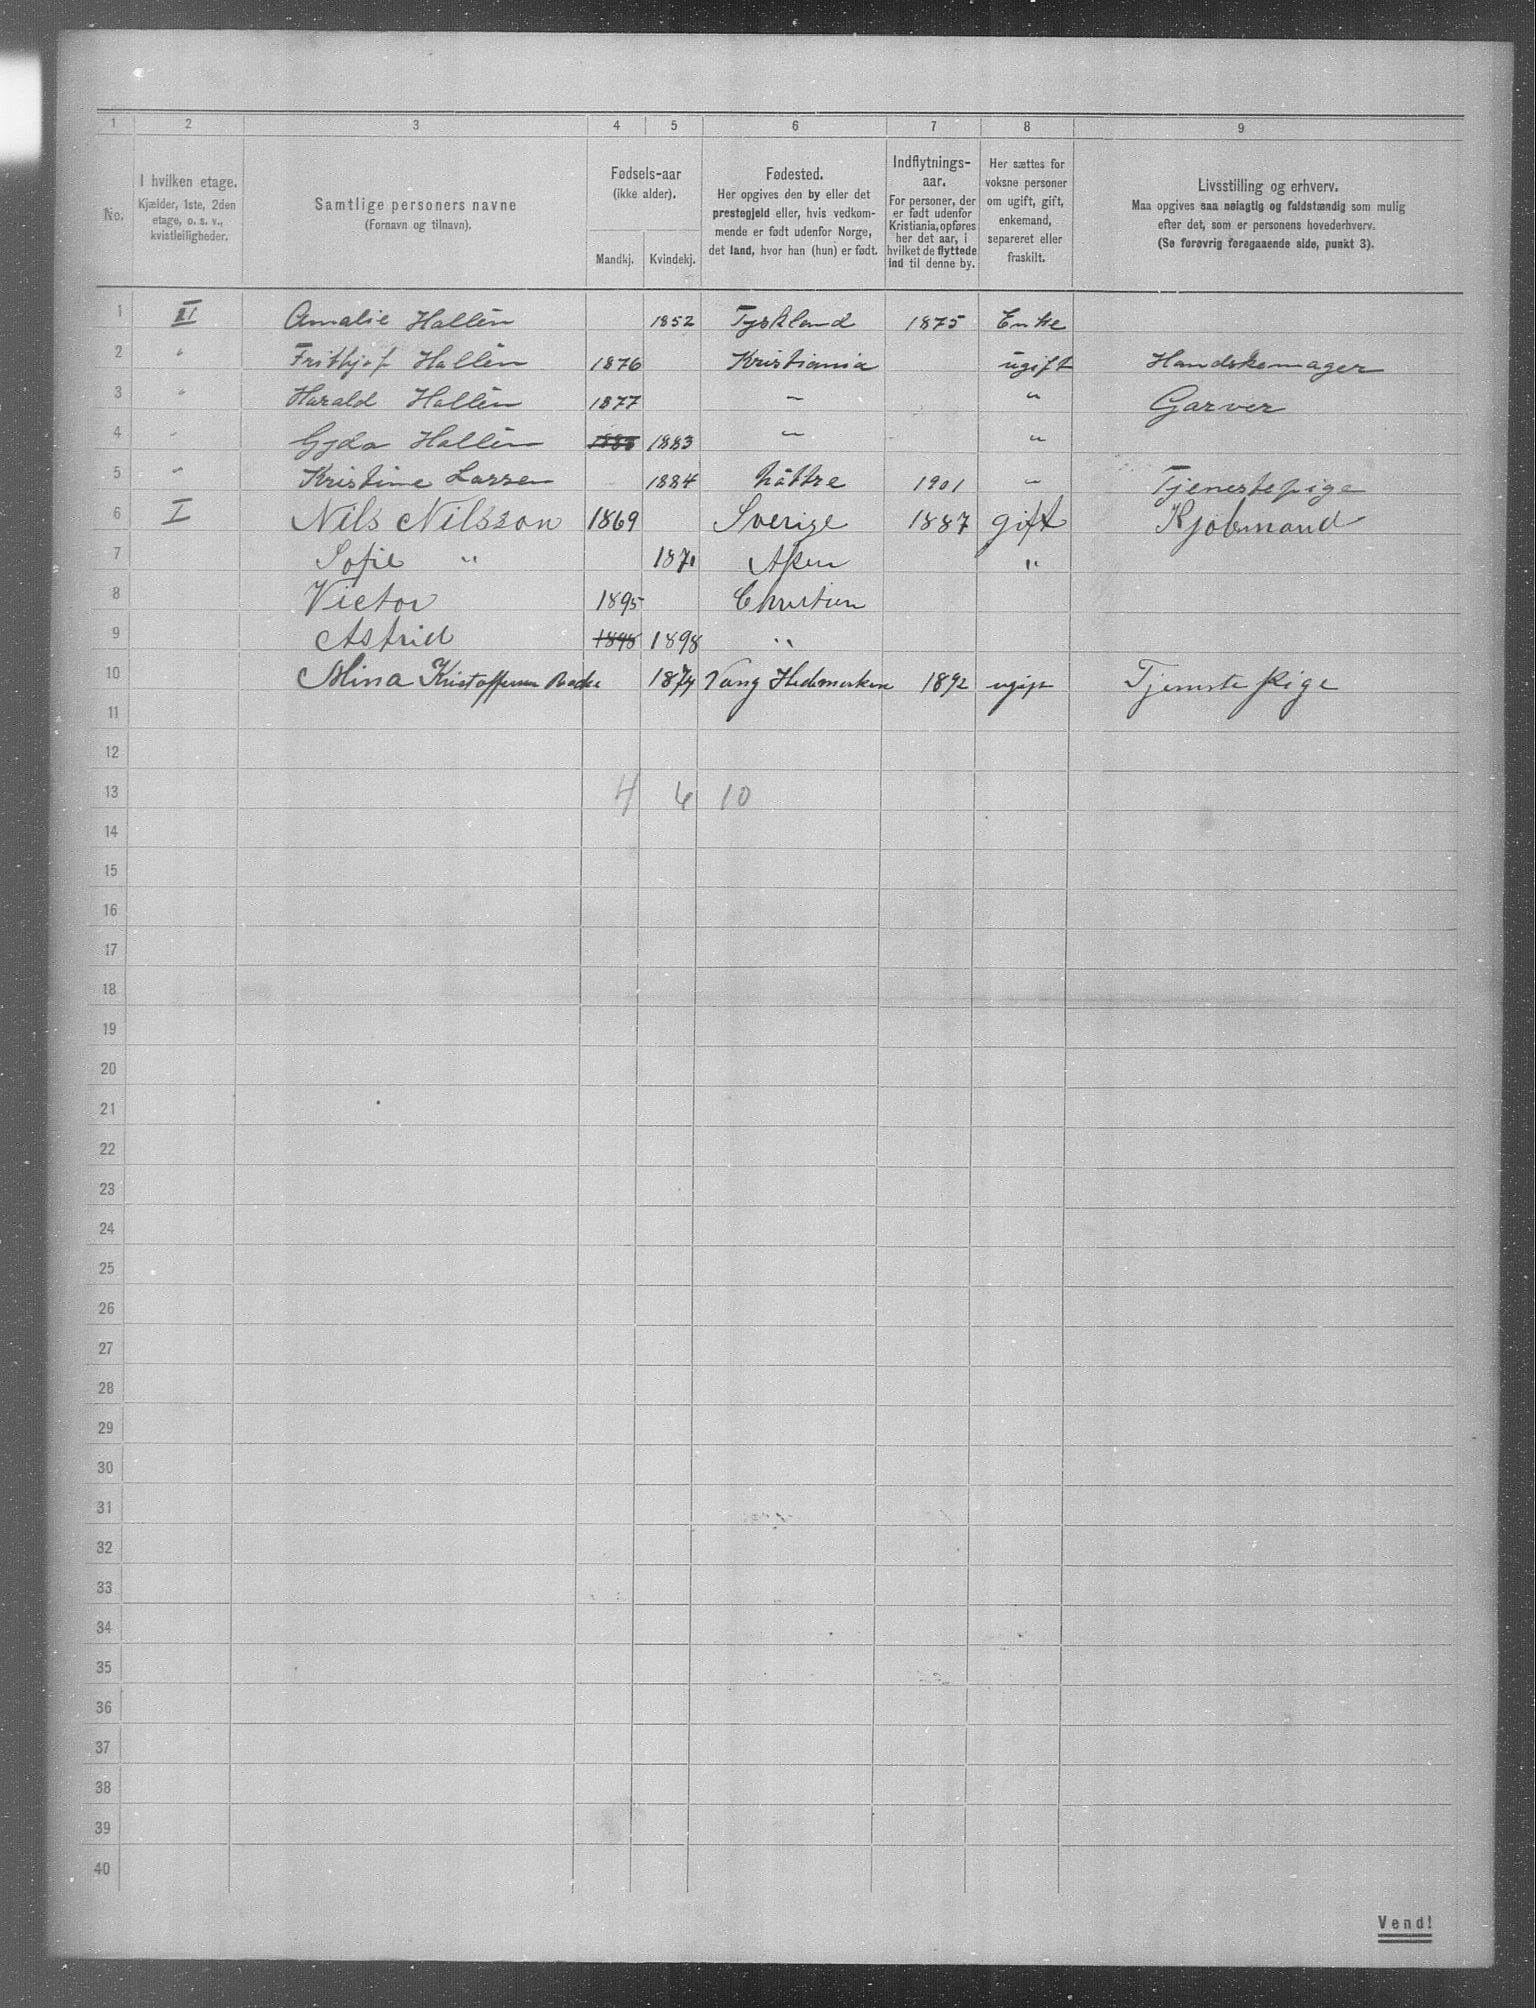 1 2 3 4 5 6 7 8 9
No.
I hvilken etage.
Kjælder, 1ste, 2den
etage, o. s. v.,
kvistleiligheder.
Samtlige personers navne
(Fornavn og tilnavn).
Fødsels-aar
(ikke alder).
Mandkj. Kvindekj.
Fødested.
Her opgives den by eller det
prestegjeld eller, hvis vedkom-
mende er født udenfor Norge,
det land, hvor han (hun) er født.
Indflytnings-
aar.
For personer, der
er født udenfor
Kristiania, opføres
her det aar, i
hvilket de flyttede
ind til denne by.
Her sættes for
voksne personer
om ugift, gift,
enkemand,
separeret eller
fraskilt.
Livsstilling og erhverv.
Maa opgives saa nøiagtig og fuldstændig som mulig
efter det, som er personens hovederhverv.
(Se forøvrig foregaaende side, punkt 3).
1 II Amalie Hallén 1852 Tyskland 1875 Enke
2 " Frithjof Hallén 1876 Kristiania ugift Handskemager
3 " Harald Hallén 1877 " " Garver
4 " Gyda Hallén 1883 " "
5 " Kristine Larsen 1884 1901 " Tjenestepige
6 I Nils Nilsson 1869 Sverige 1887 gift Kjøbmand
7 Sofie " 1871 Asker "
8 Victor 1895 Christian
9 Astrid 1898 1898 "
10 Mina Kristoffersen 1874 Vang Hedemarken 1892 ugift Tjenestepige
11
12
13 4 6 10
14
15
16
17
18
19
20
21
22
23
24
25
26
27
28
29
30
31
32
33
34
35
36
37
38
39
40
Vend!